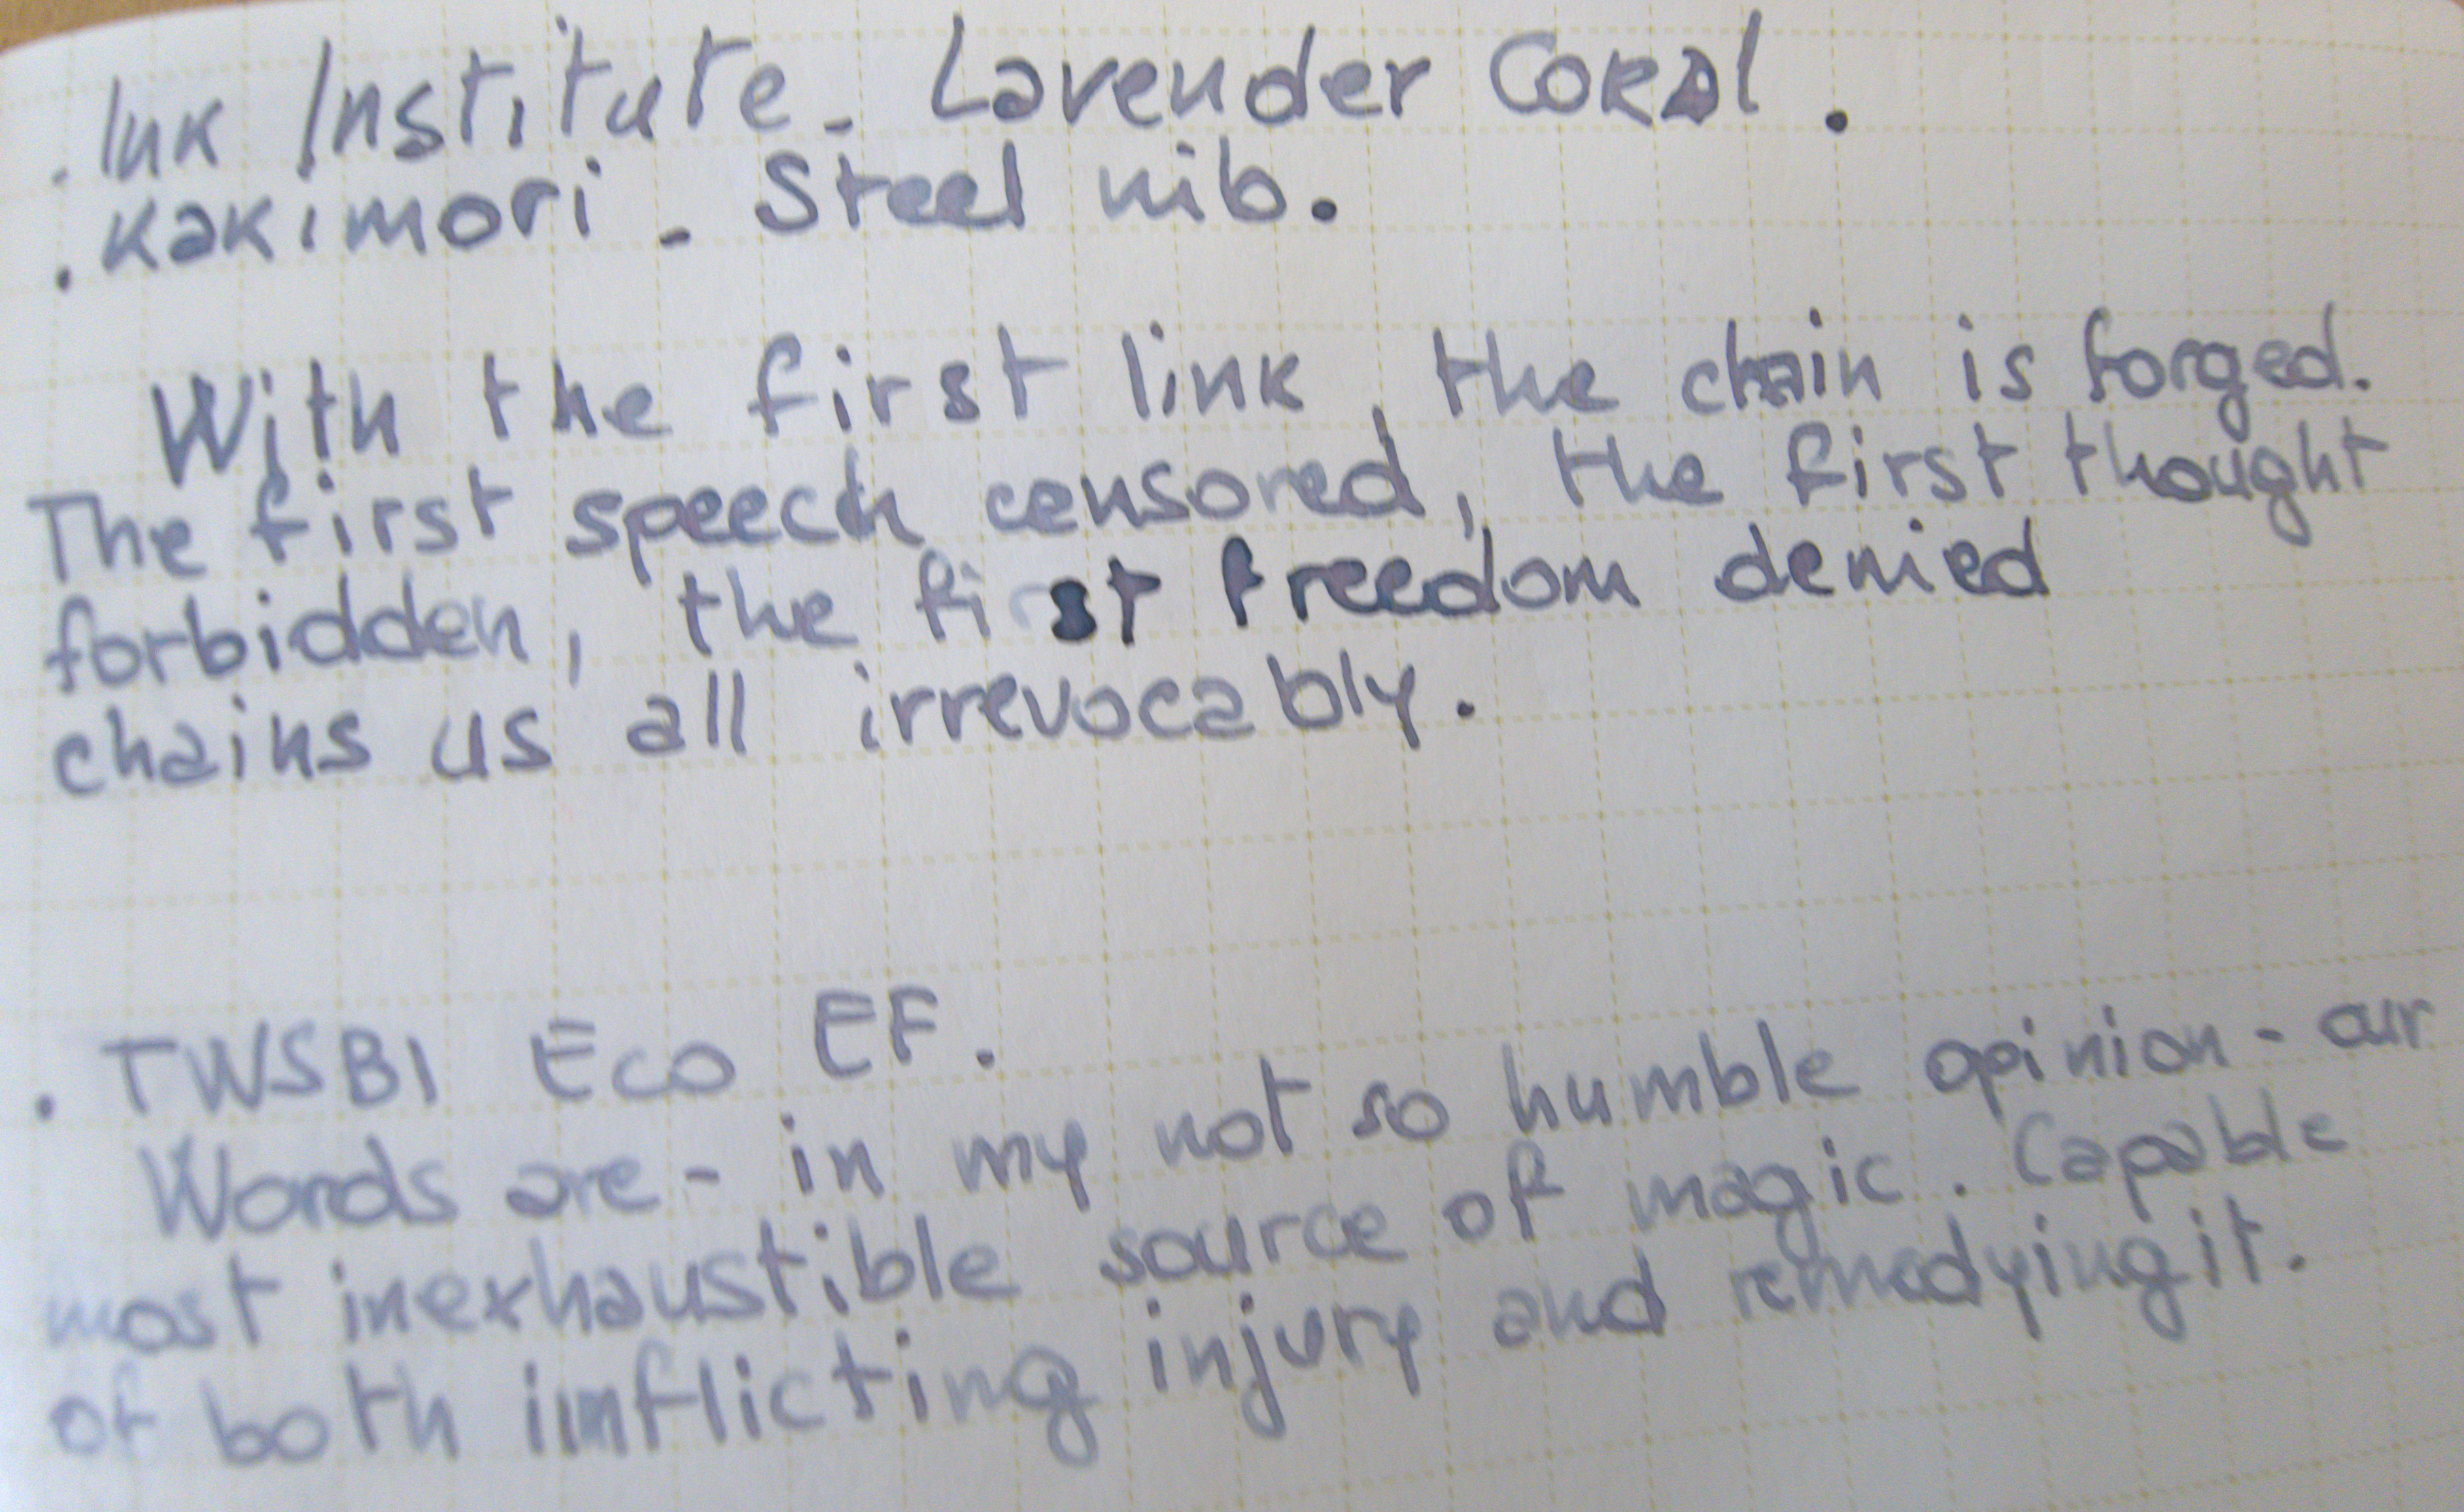 . Ink Institute - Lavender Coral.
. Kakimori - Steel nib.
With the first link, the chain is forged.
The first speech censored, the first thought
forbidden, the first freedom denied
chains us all irrevocably.
. TWSBI Eco EF.
Words are - in my not so humble opinion - our
most inexhaustible source of magic. Capable
of both inflicting injury and remedying it.